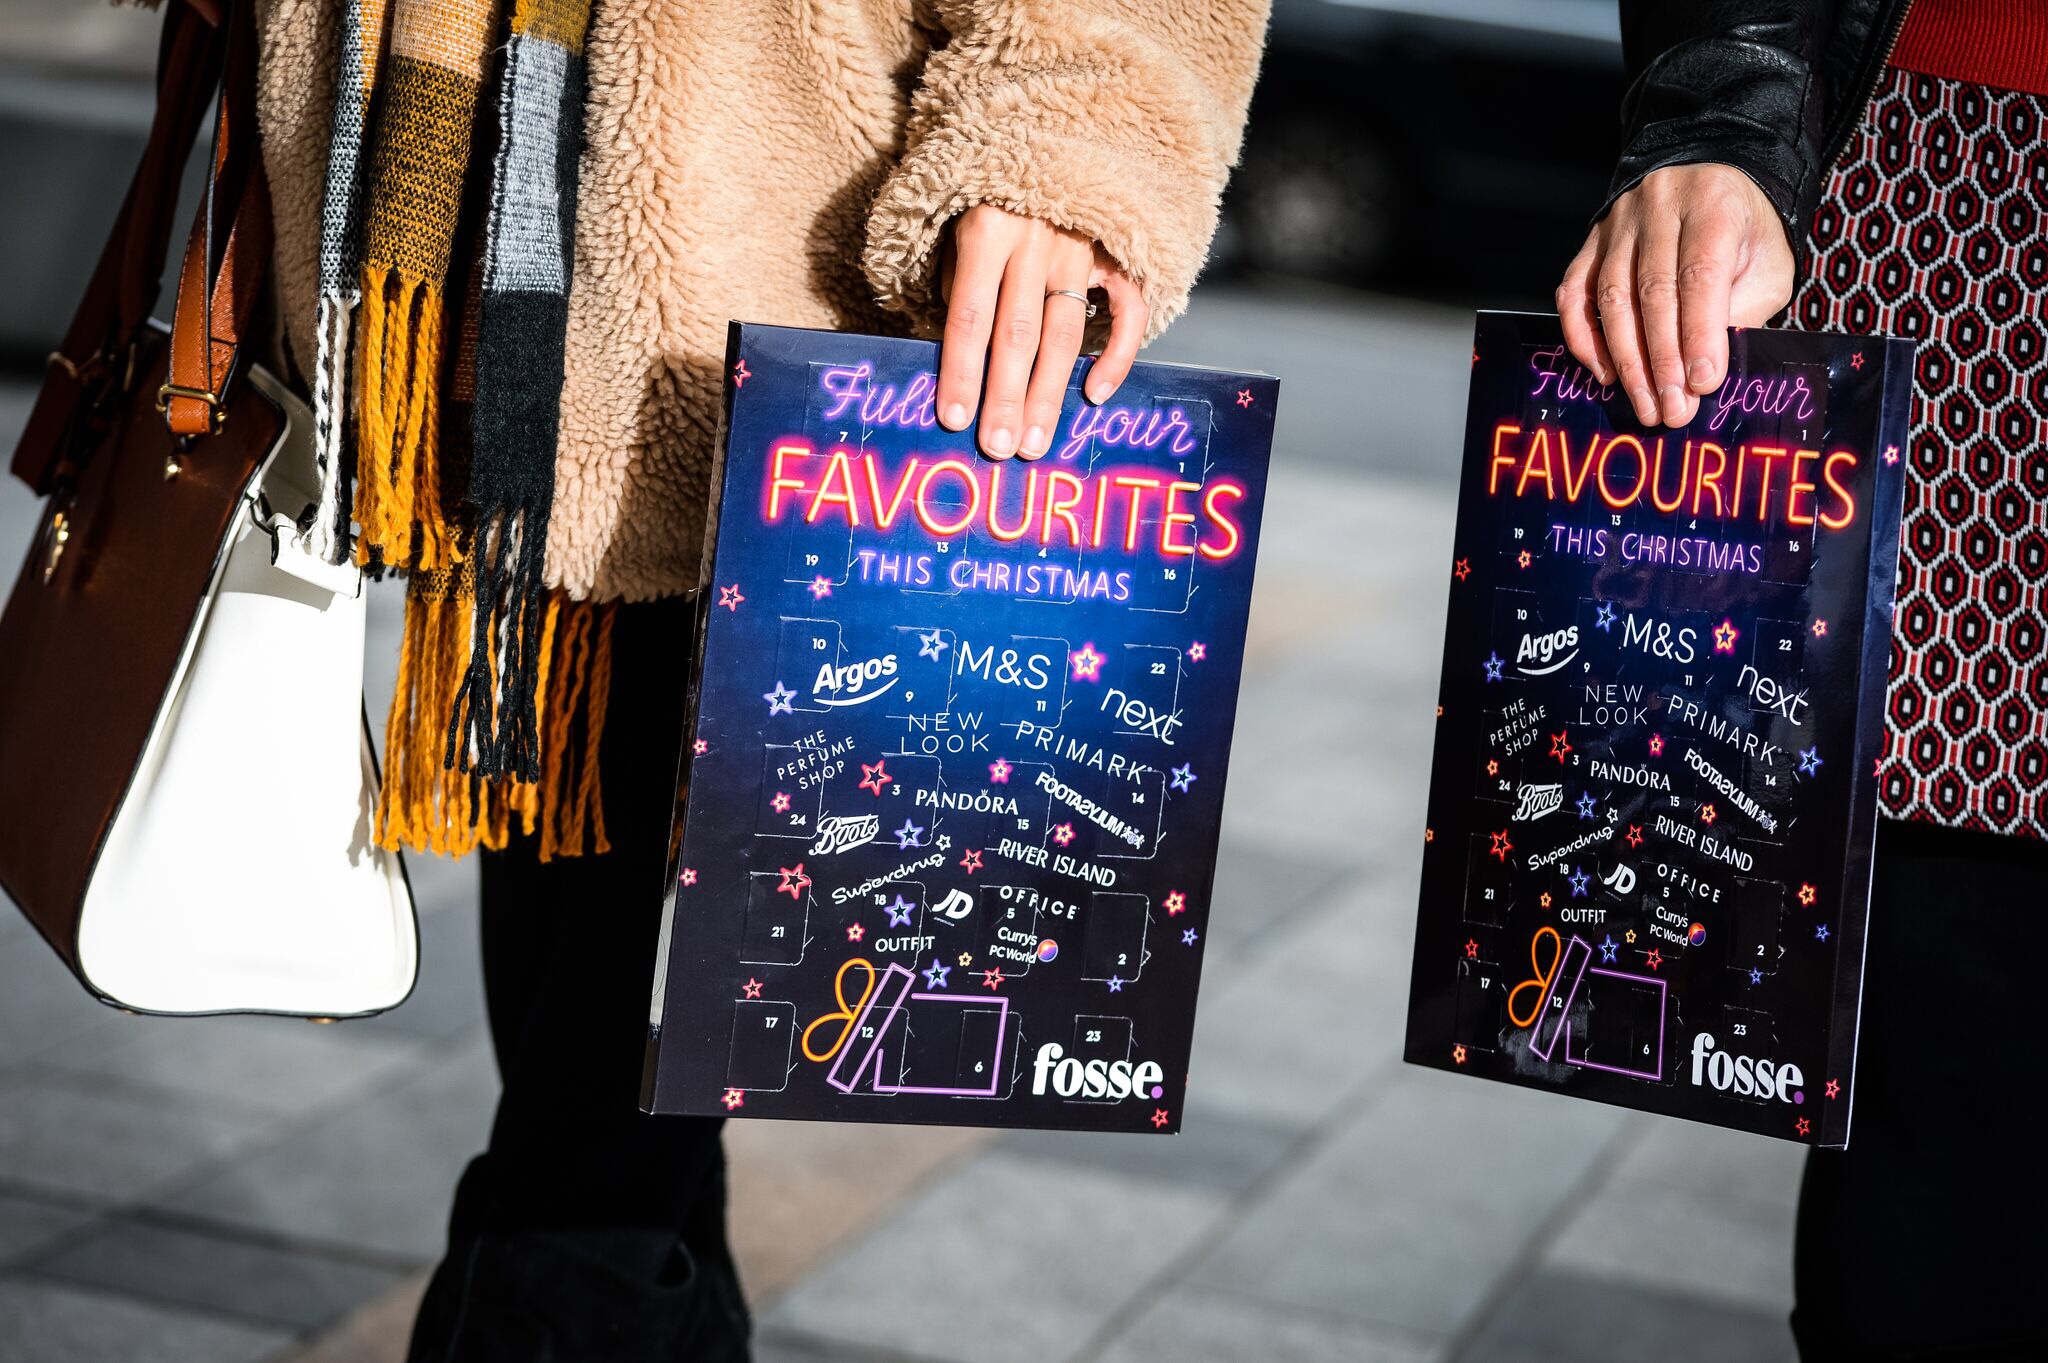 Full your
FAVOURITES
THIS CHRISTMAS
7
1
19
13
4
16
10
Argos
M&S
22
9
11
next
NEW
LOOK
PRIMARK
THE
PERFUME
SHOP
3
PANDÖRA
15
FOOTASYLUM
14
24
Boots
RIVER ISLAND
Superdrug
18
JD
OFFICE
5
21
OUTFIT
Currys
PC World
2
17
12
6
23
fosse.
Full your
FAVOURITES
THIS CHRISTMAS
7
1
19
13
4
16
10
Argos
M&S
22
9
11
next
NEW
LOOK
PRIMARK
THE
PERFUME
SHOP
3
PANDÖRA
15
FOOTASYLUM
14
24
Boots
RIVER ISLAND
Superdrug
18
JD
OFFICE
5
21
OUTFIT
Currys
PC World
2
17
12
6
23
fosse.